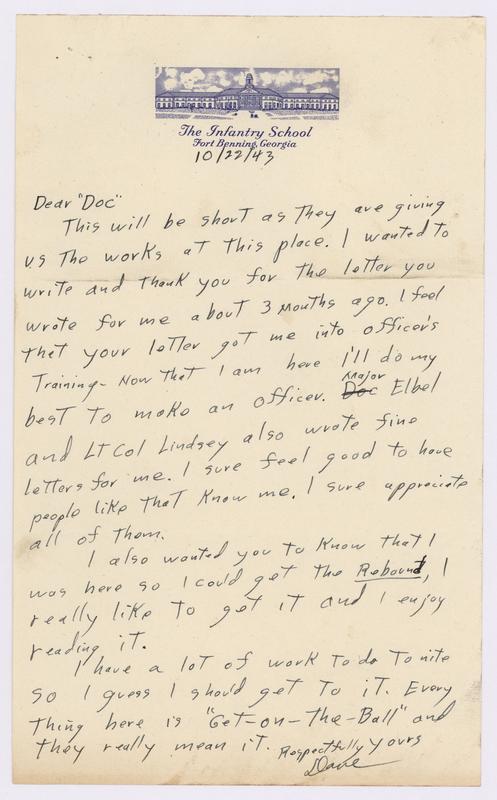 The Infantry School
Fort Benning, Georgia
10/22/43
Dear "Doc"
This will be short as they are giving
us the works at this place. I wanted to
write and thank you for the letter you
wrote for me about 3 months ago. I feel
that your letter got me into officer's
Training- Now that I am here I'll do my
best to make an officer. Doc Major Elbel
and Lt Col Lindsey also wrote fine
letters for me. I sure feel good to have
people like that know me. I sure appreciate
all of them.
I also wanted you to know that I
was here so I could get the Rebound, I
really like to get it and I enjoy
reading it.
I have a lot of work to do tonite
so I guess I should get to it. Every
thing here is "Get-on-the-Ball" and
they really mean it. Respectfully yours
Dave